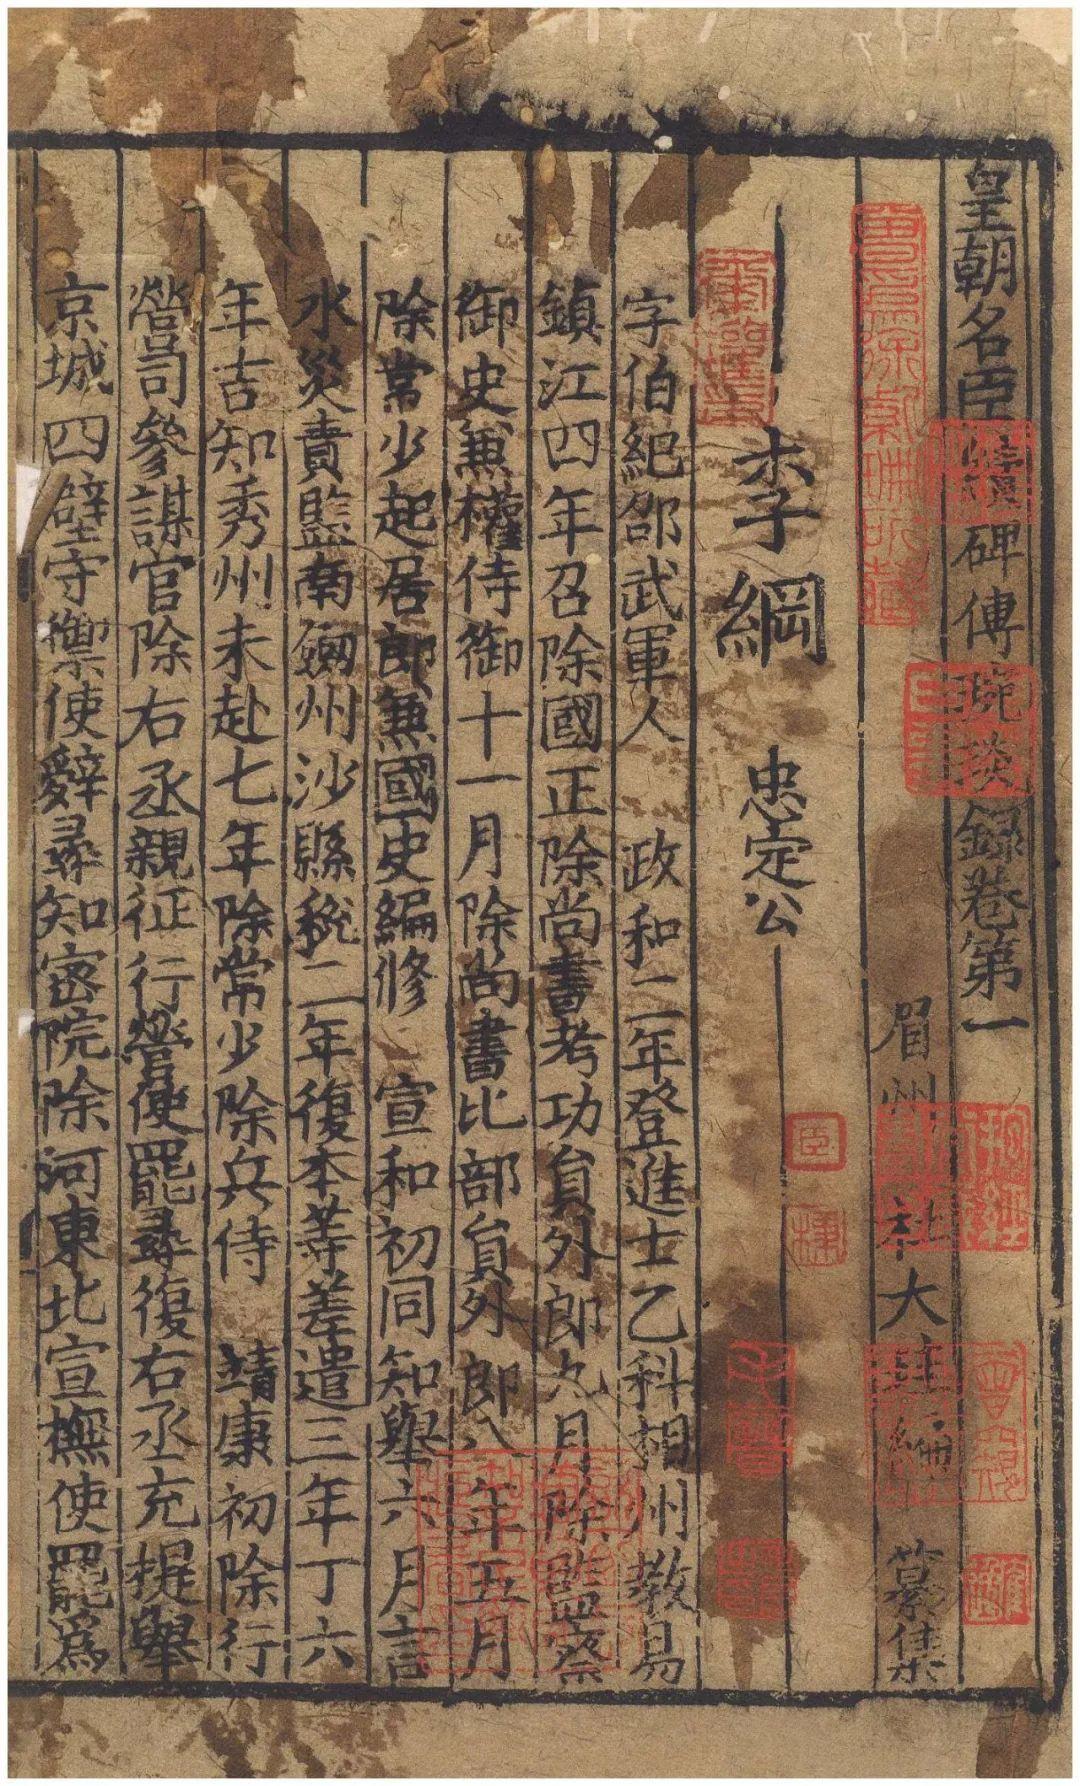 皇朝名臣續碑傳琬琰録卷第一
眉州 李 大 纂集
李綱 忠定公
字伯紀邵武軍人 政和二年登進士乙科相州教易
鎮江四年召除國正除尚書考功員外郎九月除監察
御史兼權侍御十一月除尚書比部員外郎八年五月
除常少起居郎兼國史編修 宣和初同知舉六月言
水災責監南劔州沙縣稅二年復本等差遣三年丁六
年吉知秀州未赴七年除常少除兵侍 靖康初除行
營司參謀官除右丞親征行營使罷尋復右丞充提舉
京城四壁守禦使辭尋知密院除河東北宣撫使罷爲